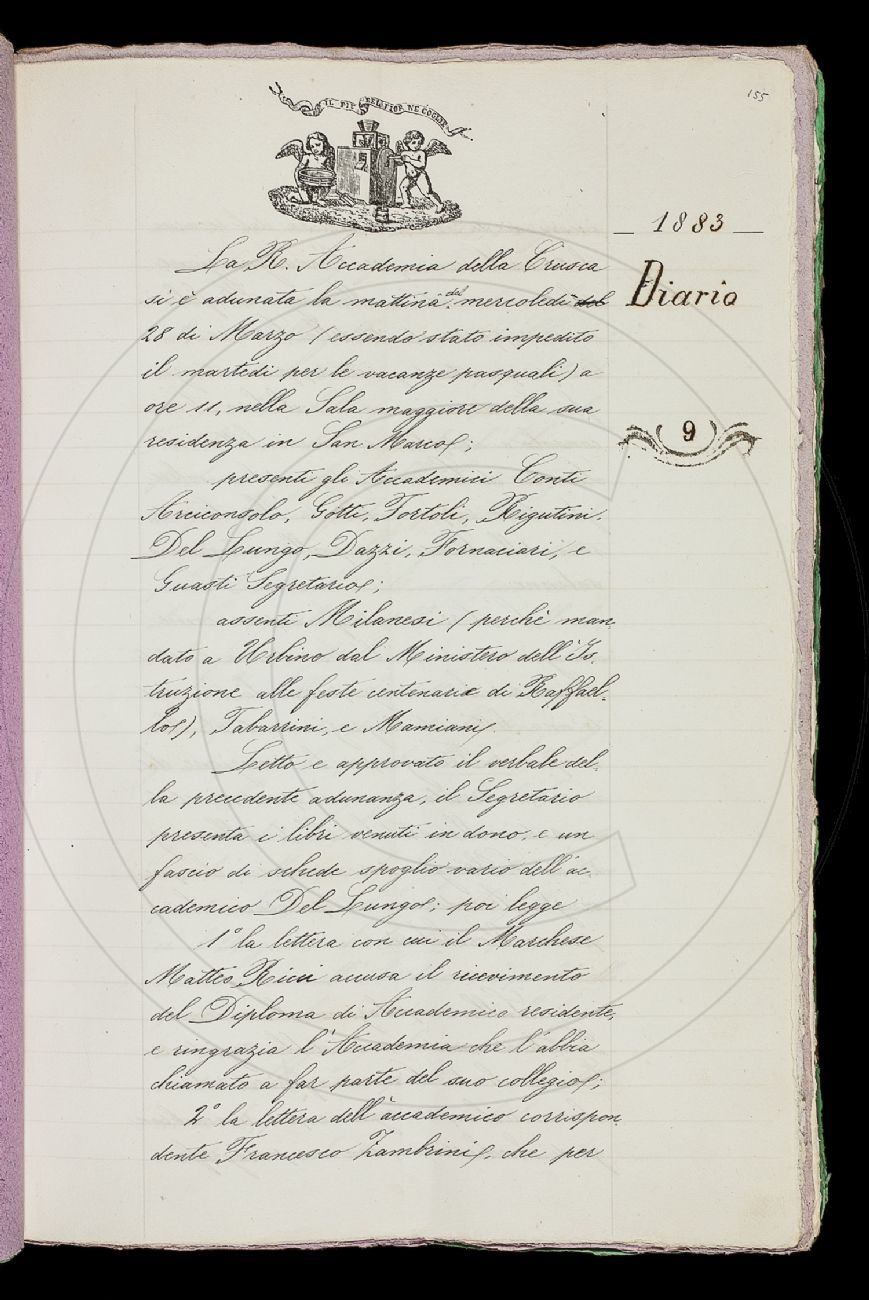 155
IL PIÙ BEL FIOR NE COGLIE
— 1883 —
Diario
9
La R. Accademia della Crusca
si è adunata la mattina del mercoledì del
28 di Marzo (essendo stato impedito
il martedì per le vacanze pasquali) a
ore 11, nella Sala maggiore della sua
residenza in San Marco;
presenti gli Accademici Conti
Arciconsolo, Gotti, Tortoli, Rigutini,
Del Lungo, Dazzi, Fornaciari, e
Guasti Segretario;
assenti Milanesi (perchè man-
dato a Urbino dal Ministero dell'Is-
truzione alle feste centenarie di Raffael-
lo), Tabarrini, e Mamiani.
Letto e approvato il verbale del-
la precedente adunanza, il Segretario
presenta i libri venuti in dono, e un
fascio di schede spoglio vario dell'ac-
cademico Del Lungo; poi legge
1° la lettera con cui il Marchese
Matteo Ricci accusa il ricevimento
del Diploma di Accademico residente,
e ringrazia l'Accademia che l'abbia
chiamato a far parte del suo collegio;
2° la lettera dell'accademico corrispon-
dente Francesco Zambrini, che per